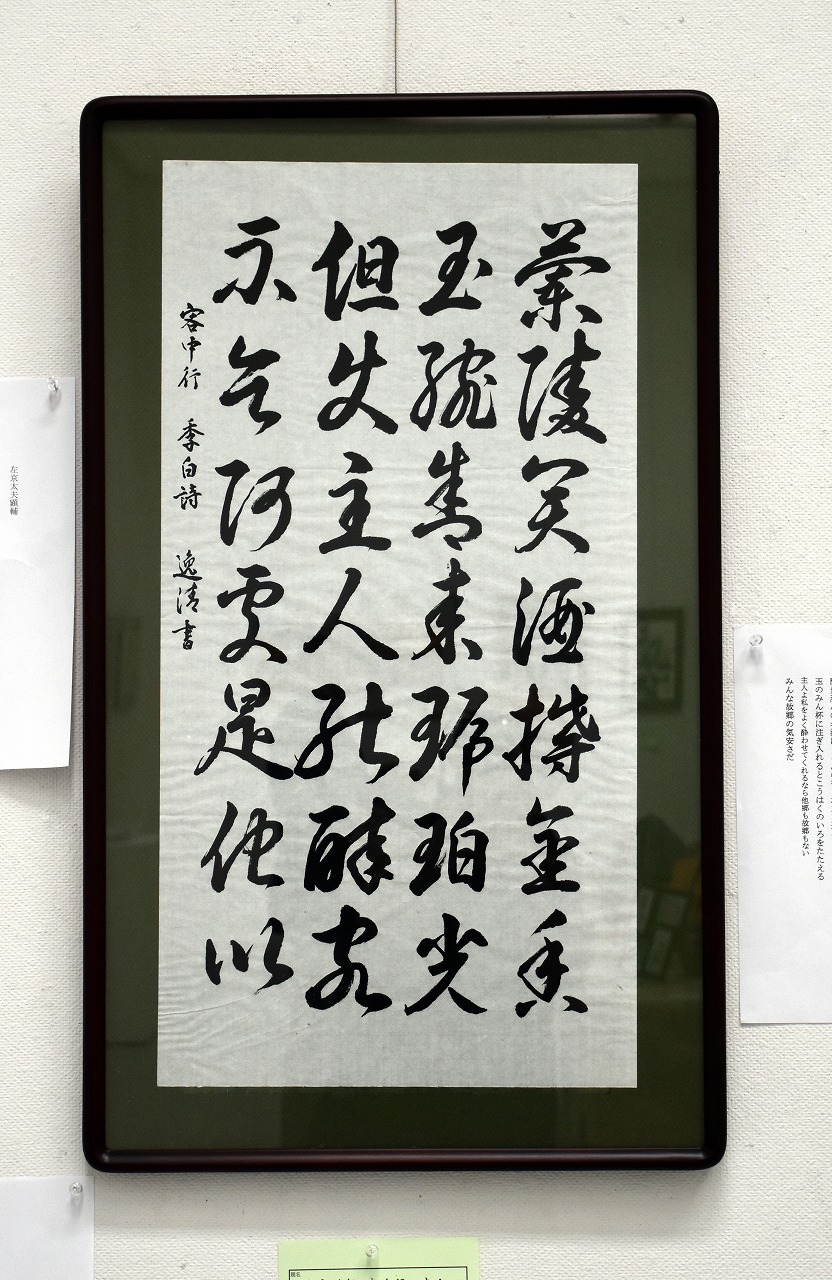 蘭陵美酒鬱金香
玉碗盛来琥珀光
但使主人能酔客
不知何処是他郷
客中行 李白詩 逸清書
左京太夫顕輔
玉のみん杯に注ぎ入れるとこうはくのいろをたたえる
主人よ私をよく酔わせてくれるなら他郷も故郷もない
みんな故郷の気安さだ
題名